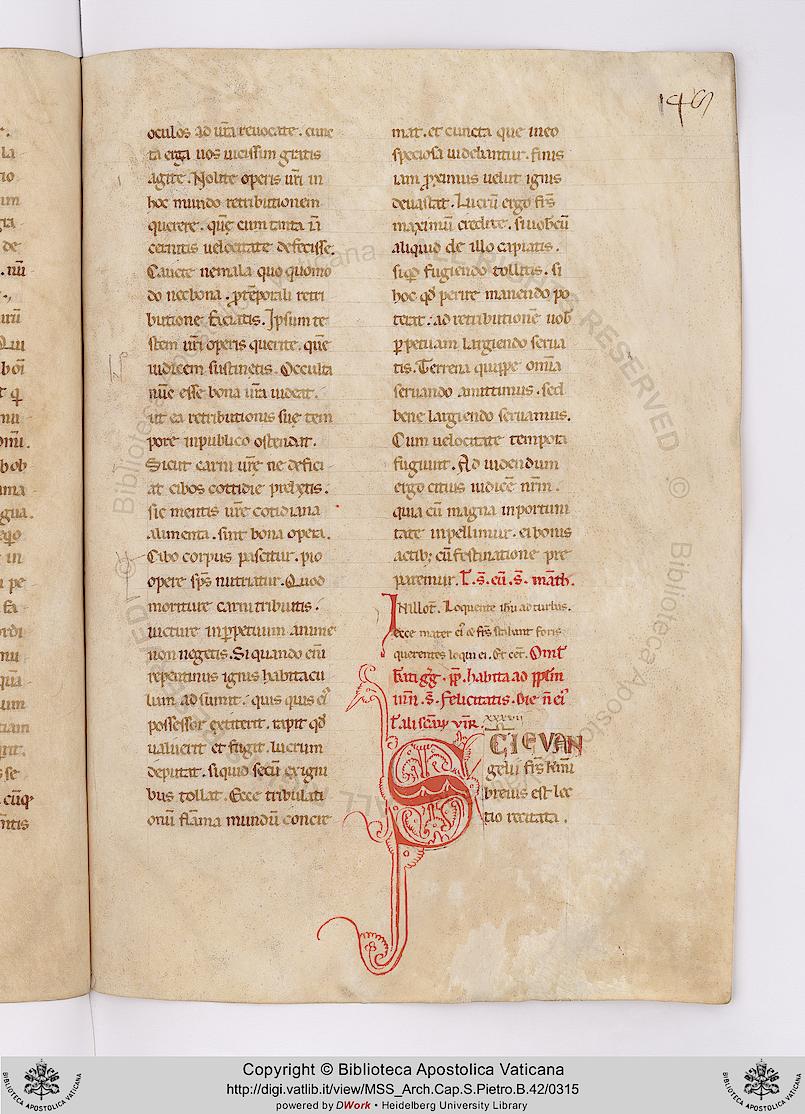 149
oculos ad ura͞ reuocate. cunc
ta erga uos uicissim gratis
agite. Nolite operis uri͞ in
hoc mundo retributionem
querere. quę cum tanta ia͞
cernitis uelocitate defecisse.
Cauete ne mala quo quomo
do nec bona. p temporali retri
butione faciatis. Ipsum te
stem uri͞ operis querite. quē
iudicem sustinetis. Occulta
nūc esse bona ura͞ uideat.
ut ea retributionis suę tem
pore in publico ostendat.
Sicut carni ure͞ ne defici
at cibos cottidie prebetis.
sic mentis ure͞ cotidiana
alimenta. sint bona opera.
Cibo corpus pascitur. pio
opere sps͞ nutriatur. Quod
moriture carni tribuitis.
uicture in ppetuum anime
non negetis. Si quando eni͞
repentinus ignis habitacu
lum adsumit. quis quis ei᾿
possessor extiterit. rapit qd͞
ualuerit et fugit. lucrum
deputat. si quid secū exigni
bus tollat. Ecce tribulati
onū flāma mundū concre
mat. et cuncta que in eo
speciosa uidebantur. finis
iam proximus uelut ignis
deuastat. Lucrū ergo frs͞
maximū credite. si uobcū
aliquid de illo capiatis.
si qd͞ fugiendo tollitis. si
hoc qd͞ perire manendo po
terat. ad retributionē uob
ppetuam largiendo serua
tis. Terrena quippe omīa
seruando amittimus. sed
bene largiendo seruamus.
Cum uelocitate tempora
fugiunt. Ad uidendum
ergo citius iudicē nrm͞.
quia cū magna inportuni
tate inpellimur. ei bonis
actib; cū festinatione pre
paremur. l. s. eu͞. s. math.
In illot. Loquente ihu͞ ad turbas.
ecce mater ei᾿ & frs͞ stabant foris
querentes loqui ei. Et cet. Oml͞
bati͞ gg. pp. habita ad pplm͞
in n. s. felicitatis. die n͞ ei᾿
xxxvii
SCI EVAN
gelii frs͞ kmi͞
breuis est lec
tio recitata.
Copyright © Biblioteca Apostolica Vaticana
http://digi.vatlib.it/view/MSS_Arch.Cap.S.Pietro.B.42/0315
powered by DWork • Heidelberg University Library